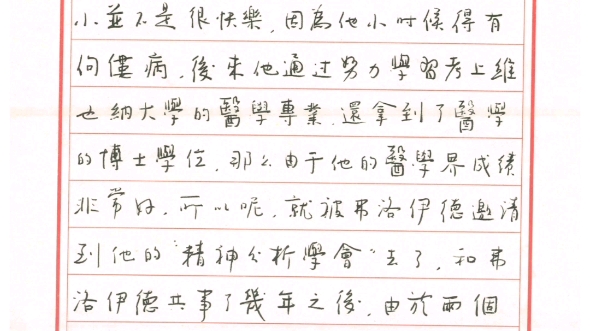 小並不是很快樂，因為他小时候得有
佝僂病，後来他通过努力學習考上維
也納大學的醫學專業，還拿到了醫學
的博士學位，那么由于他的醫學界成績
非常好，所以呢，就被弗洛伊德邀请
到他的“精神分析學會”去了，和弗
洛伊德共事了幾年之後，由於兩個